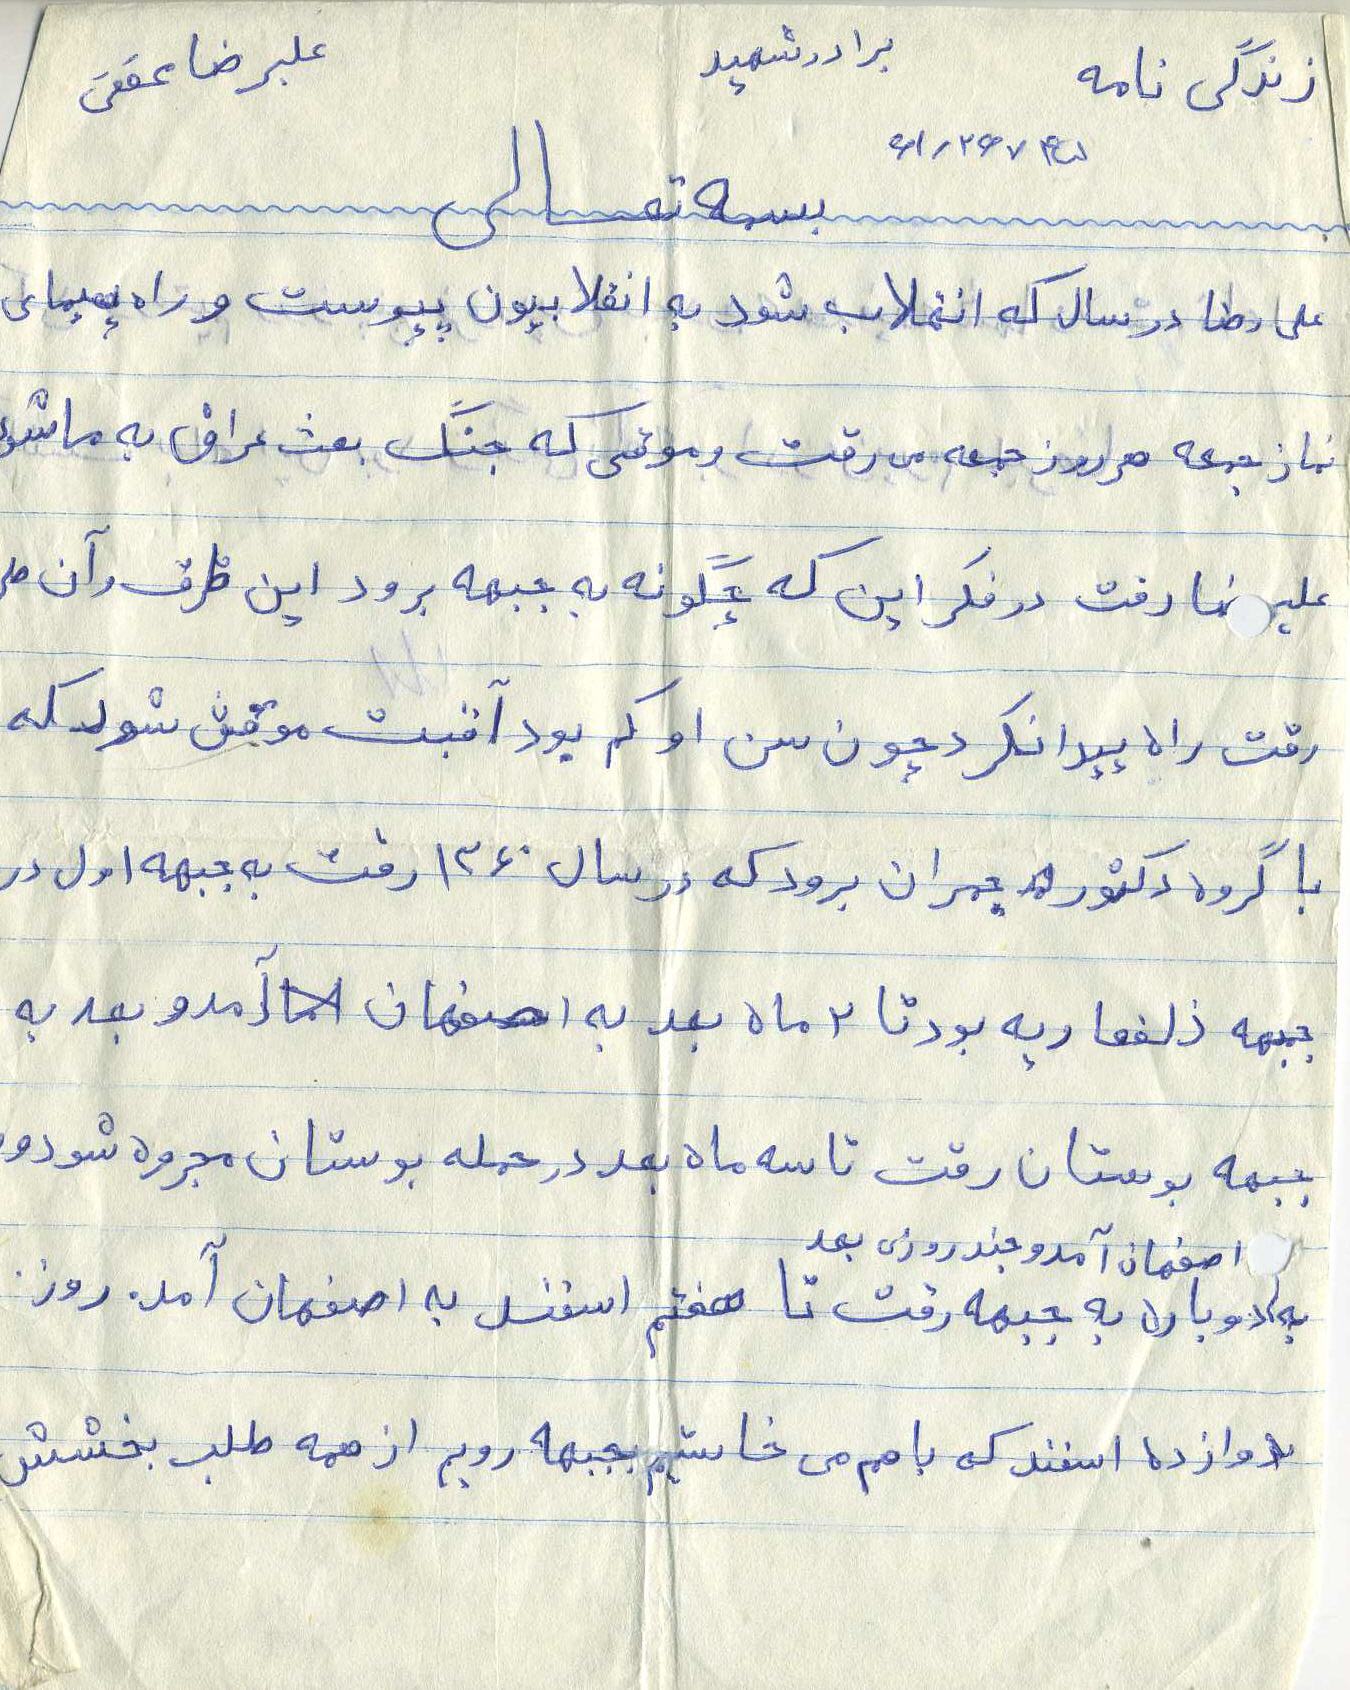 زندگی نامه برادر شهید علیرضا عققی
بسمه تعالی
علی رضا در سال که انقلاب شود به انقلابیون پیوست و راه پیمای
نماز جمعه هر روز جمعه می رفت و موقی که جنگ بعث عراق به ما شو
علیرضا رفت در فکر این که چگونه به جبهه برود این طرف و آن طر
رفت راه پیدا نکرد چون سن او کم بود آقبت موقق شود که
با گروه دکتور چمران برود که در سال ۱۳۶۰ رفت به جبهه اول در
جبهه ذلفقاریه بود تا ۲ ماه بعد به اصفهان آمد و بعد به
جبهه بوستان رفت تا سه ماه بعد در حمله بوستان مجروه شود و
اصفهان آمد و چند روزی بعد
به دوباره به جبهه رفت تا هفتم اسفند به اصفهان آمد. روز
دوازده اسفند که با هم می خاستیم بجبهه رویم از همه طلب بخشش